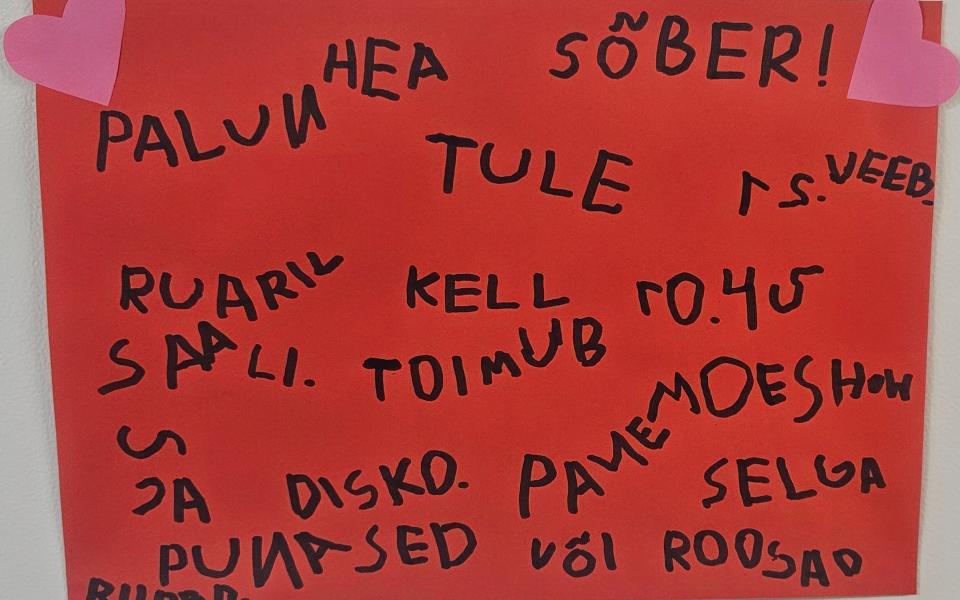 HEA SÕBER!
PALUN TULE 15. VEEB.
RUARIL KELL 10.45
SAALI. TOIMUB MOESHOW
JA DISKO. PANE SELGA
PUNASED VÕI ROOSAD